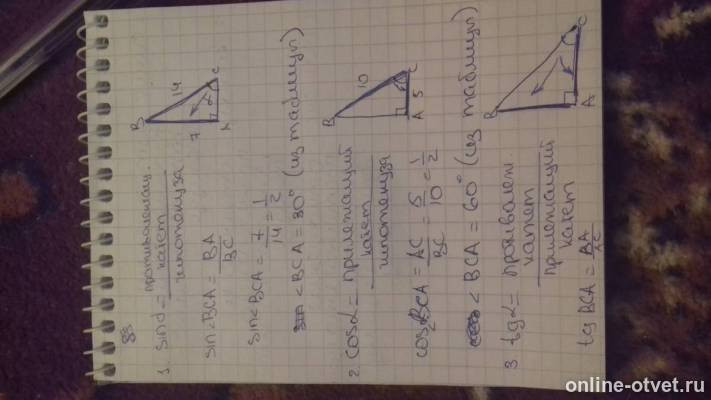 88
1. sin α = противолежащ. катет / гипотенуза
B 14 C 7 A α
sin∠BCA = BA/BC
sin<BCA = 7/14 = 1/2
<BCA = 30° (из таблицы)
2. cos α = прилежащий катет / гипотенуза
B 10 C A 5
cos∠BCA = AC/BC = 5/10 = 1/2
<BCA = 60° (из таблицы)
3 tg α = противолеж катет / прилежащий катет
B C A
tg BCA = BA/AC
online-otvet.ru